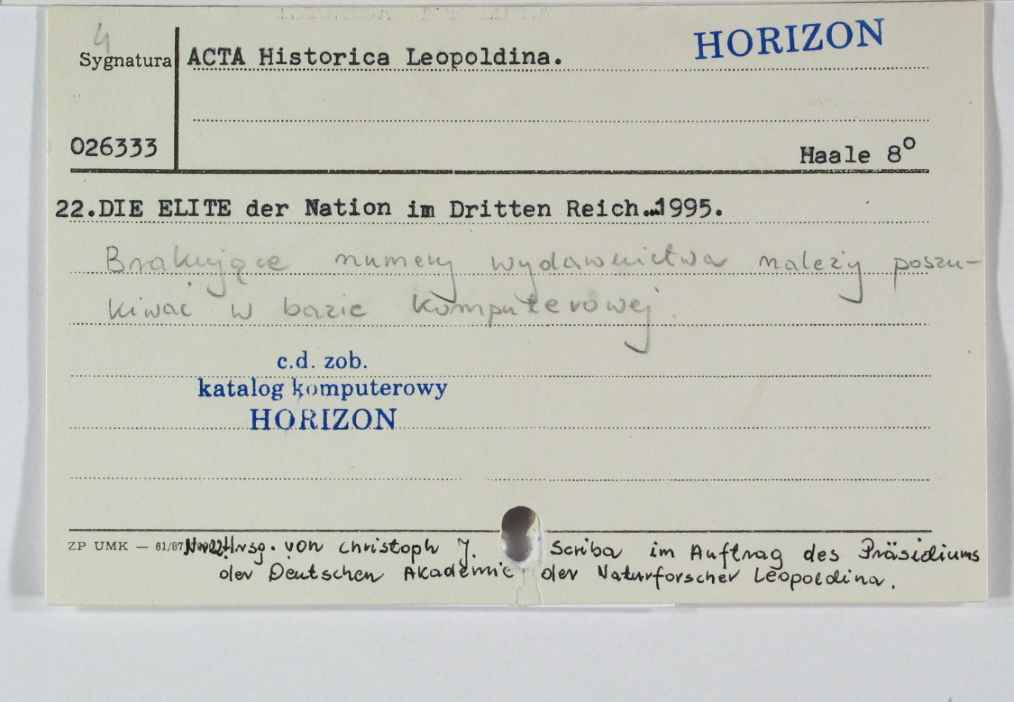 4
HORIZON
Sygnatura ACTA Historica Leopoldina.
026333
Haale 8°
22.DIE ELITE der Nation im Dritten Reich...1995.
Brakujące numery wydawnictwa należy poszu-
kiwać w bazie komputerowej.
c.d. zob.
katalog komputerowy
HORIZON
ZP UMK — 61/87 Nr22Hrsg. von Christoph J. Scriba im Auftrag des Präsidiums
der Deutschen Akademie der Naturforscher Leopoldina.